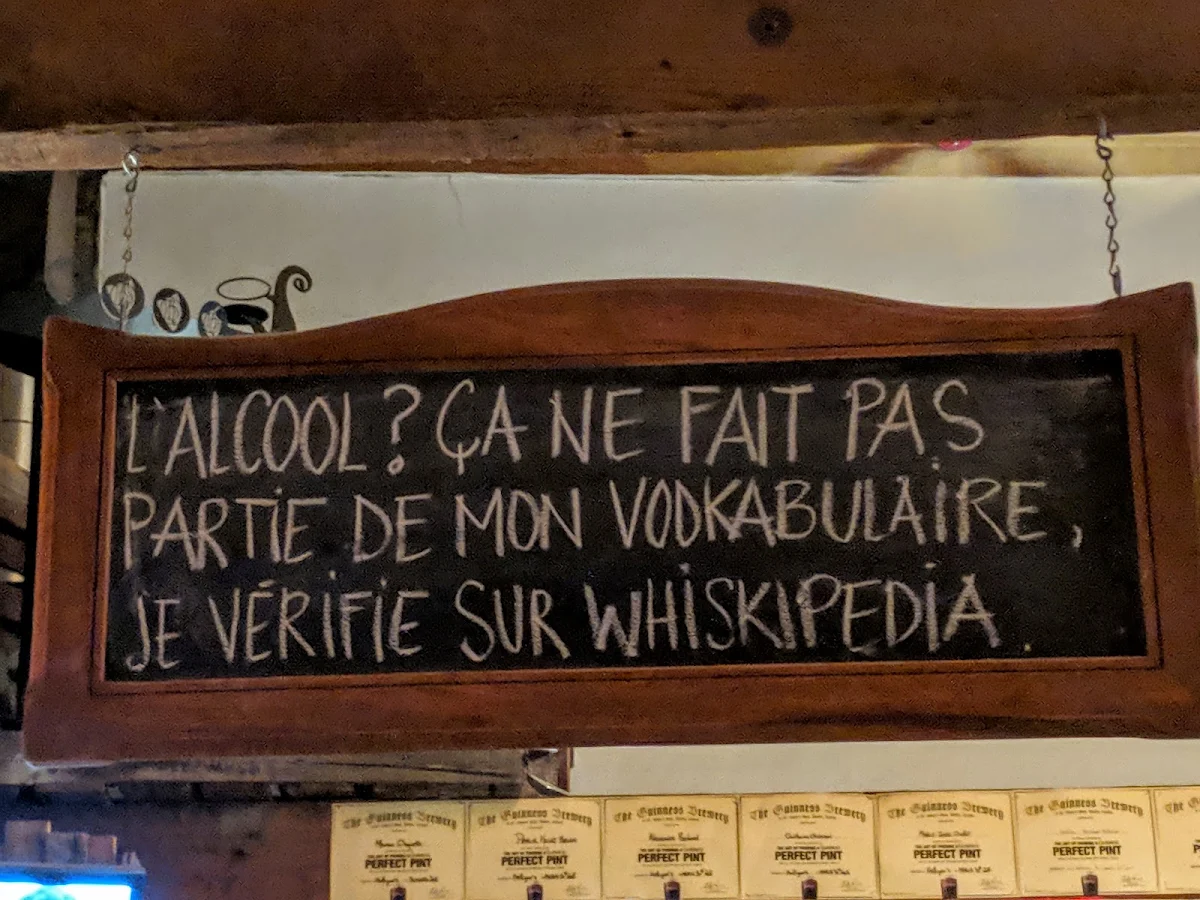 L'ALCOOL ? ÇA NE FAIT PAS
PARTIE DE MON VODKABULAIRE,
JE VÉRIFIE SUR WHISKIPEDIA.
The Guinness Brewery
The Guinness Brewery
The Guinness Brewery
The Guinness Brewery
The Guinness Brewery
The Guinness Brewery
PERFECT PINT
PERFECT PINT
PERFECT PINT
PERFECT PINT
PERFECT PINT
PERFECT PINT